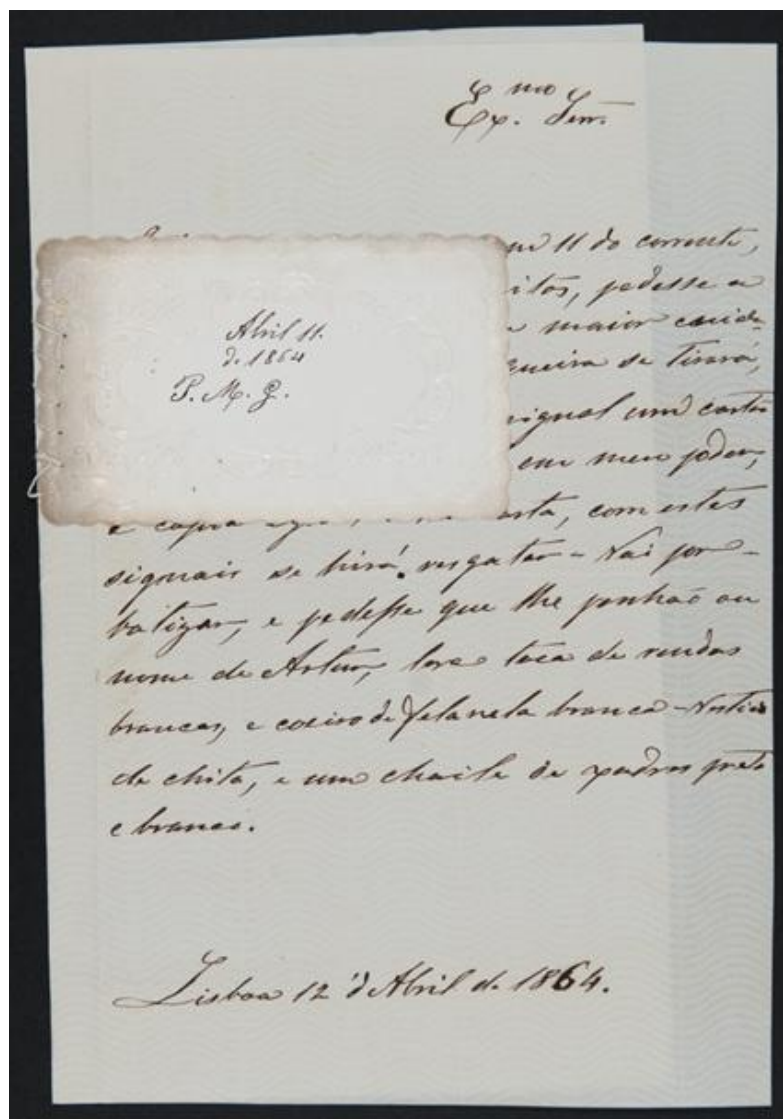 Ex.mo Senr.
11 do corrente,
pedesse a
maior cuida-
se tirará,
signal um cartão
em meu poder,
e copia carta, com estes
signais se hirá resgatar - Vai por -
batizar, e pedesse que lhe ponhão ou
nome de Artur, leva toca de rendas
brancas, e coeiro de felanela branca - Vestido
de chita, e um chaile de xadres preto
e branco.
Lisboa 12 d'Abril de 1864.
Abril 11.
d. 1864
P. M. G.